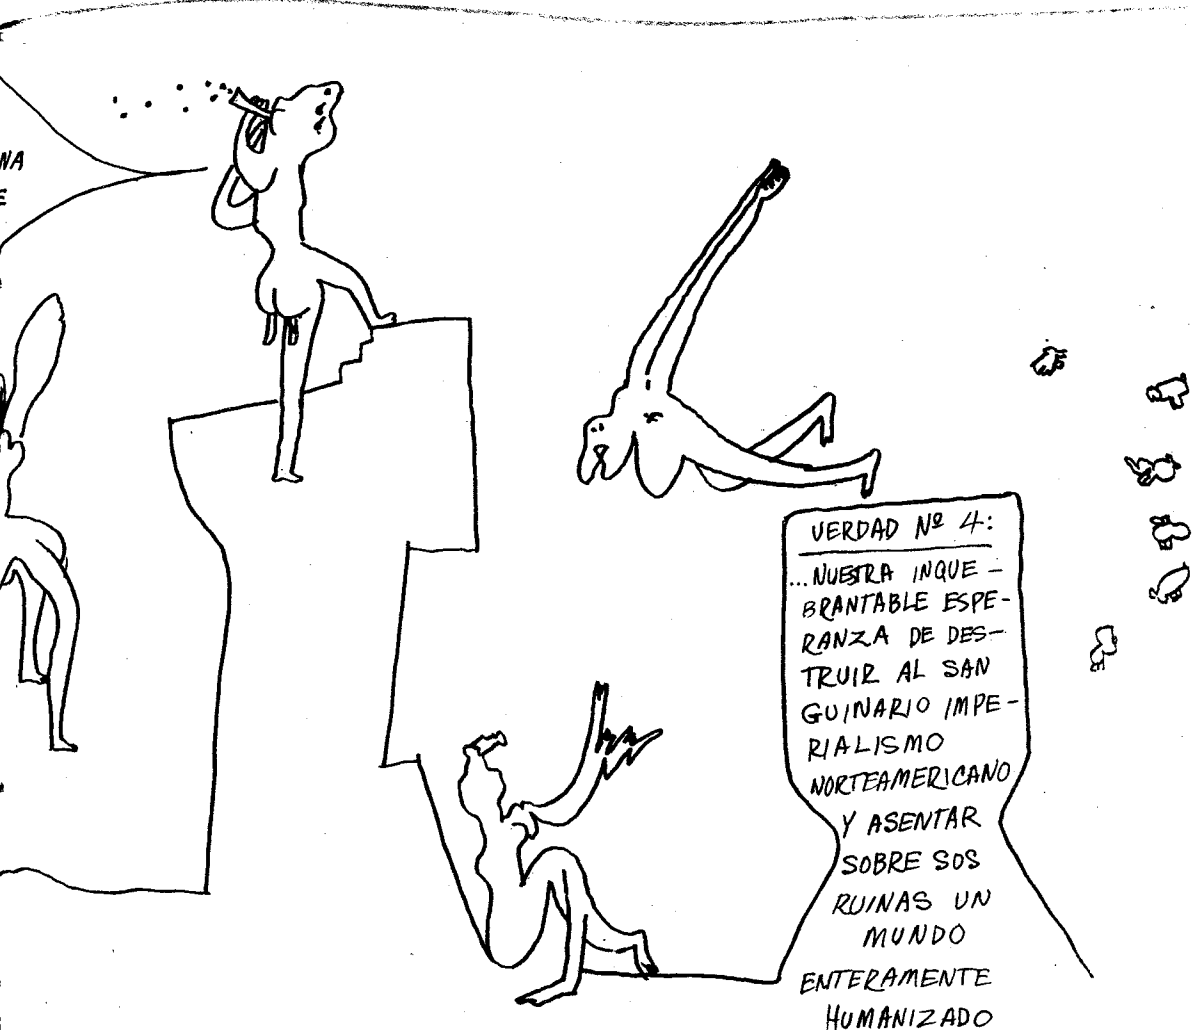 NA
E
VERDAD Nº 4:
...NUESTRA INQUE-
BRANTABLE ESPE-
RANZA DE DES-
TRUIR AL SAN
GUINARIO IMPE-
RIALISMO
NORTEAMERICANO
Y ASENTAR
SOBRE SOS
RUINAS UN
MUNDO
ENTERAMENTE
HUMANIZADO